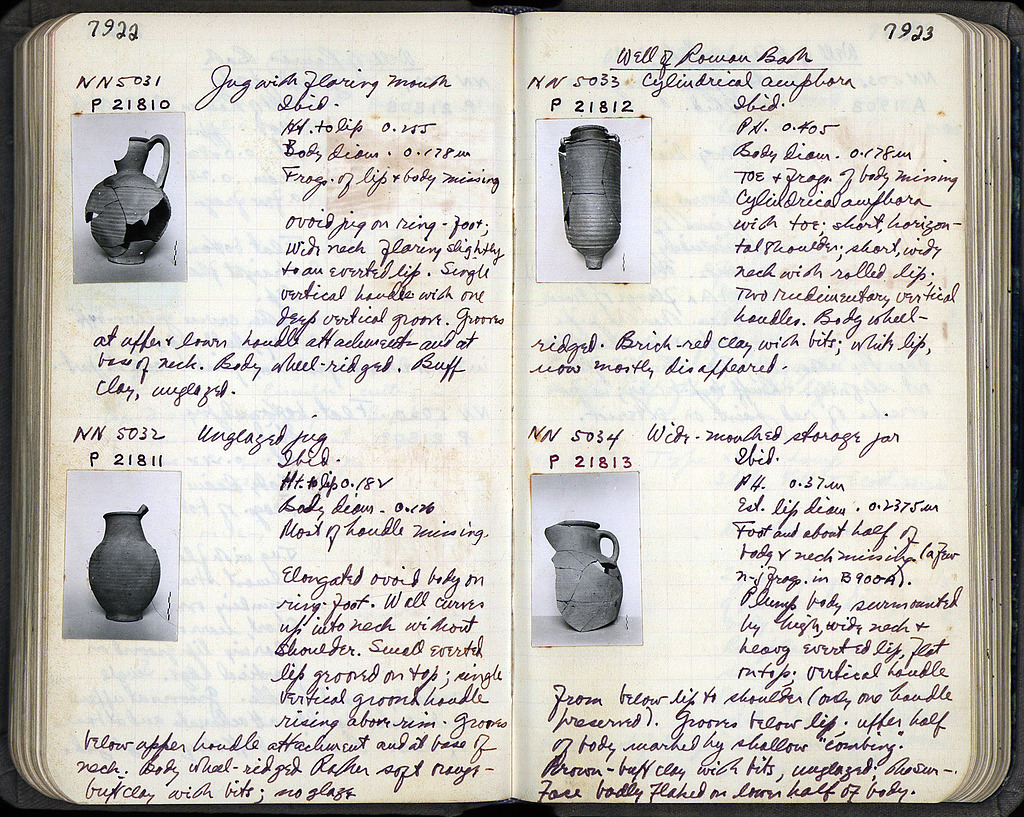 7922
NN 5031 Jug with flaring mouth
P 21810 Ibid.
Ht. to lip 0.255
Body diam. 0.178 m
Frags. of lip & body missing
ovoid jug on ring-foot;
wide neck flaring slightly
to an everted lip. Single
vertical handle with one
deep vertical groove. Grooves
at upper & lower handle attachments and at
base of neck. Body wheel-ridged. Buff
clay, unglazed.
NN 5032 Unglazed jug
P 21811 Ibid.
Ht. to lip 0.182
Body diam. 0.126
Most of handle missing.
Elongated ovoid body on
ring-foot. Wall curves
up into neck without
shoulder. Small everted
lip grooved on top; single
vertical handle
rising above rim. Grooves
below upper handle attachment and at base of
neck. Body wheel-ridged Rather soft orange-
buff clay with bits; no glaze
7923
Well of Roman Bath
NN 5033 Cylindrical amphora
P 21812 Ibid.
P.H. 0.405
Body diam. 0.178 m
Toe & frags. of body missing
Cylindrical amphora
with toe; short, horizon-
tal shoulder; short, wide
neck with rolled lip.
Two rudimentary vertical
handles. Body wheel-
ridged. Brick-red clay with bits; white lip,
now mostly disappeared.
NN 5034 Wide-mouthed storage jar
P 21813 Ibid.
P.H. 0.37 m
Est. lip diam. 0.2375 m
Foot and about half of
body & neck missing (a few
n-j frags. in B 900A).
Plump body surmounted
by high, wide neck &
heavy everted lip, flat
on top; vertical handle
from below lip to shoulder (only one handle
preserved). Grooves below lip; upper half
of body marked by shallow "combing".
Brown-buff clay with bits, unglazed; the sur-
face badly flaked on lower half of body.